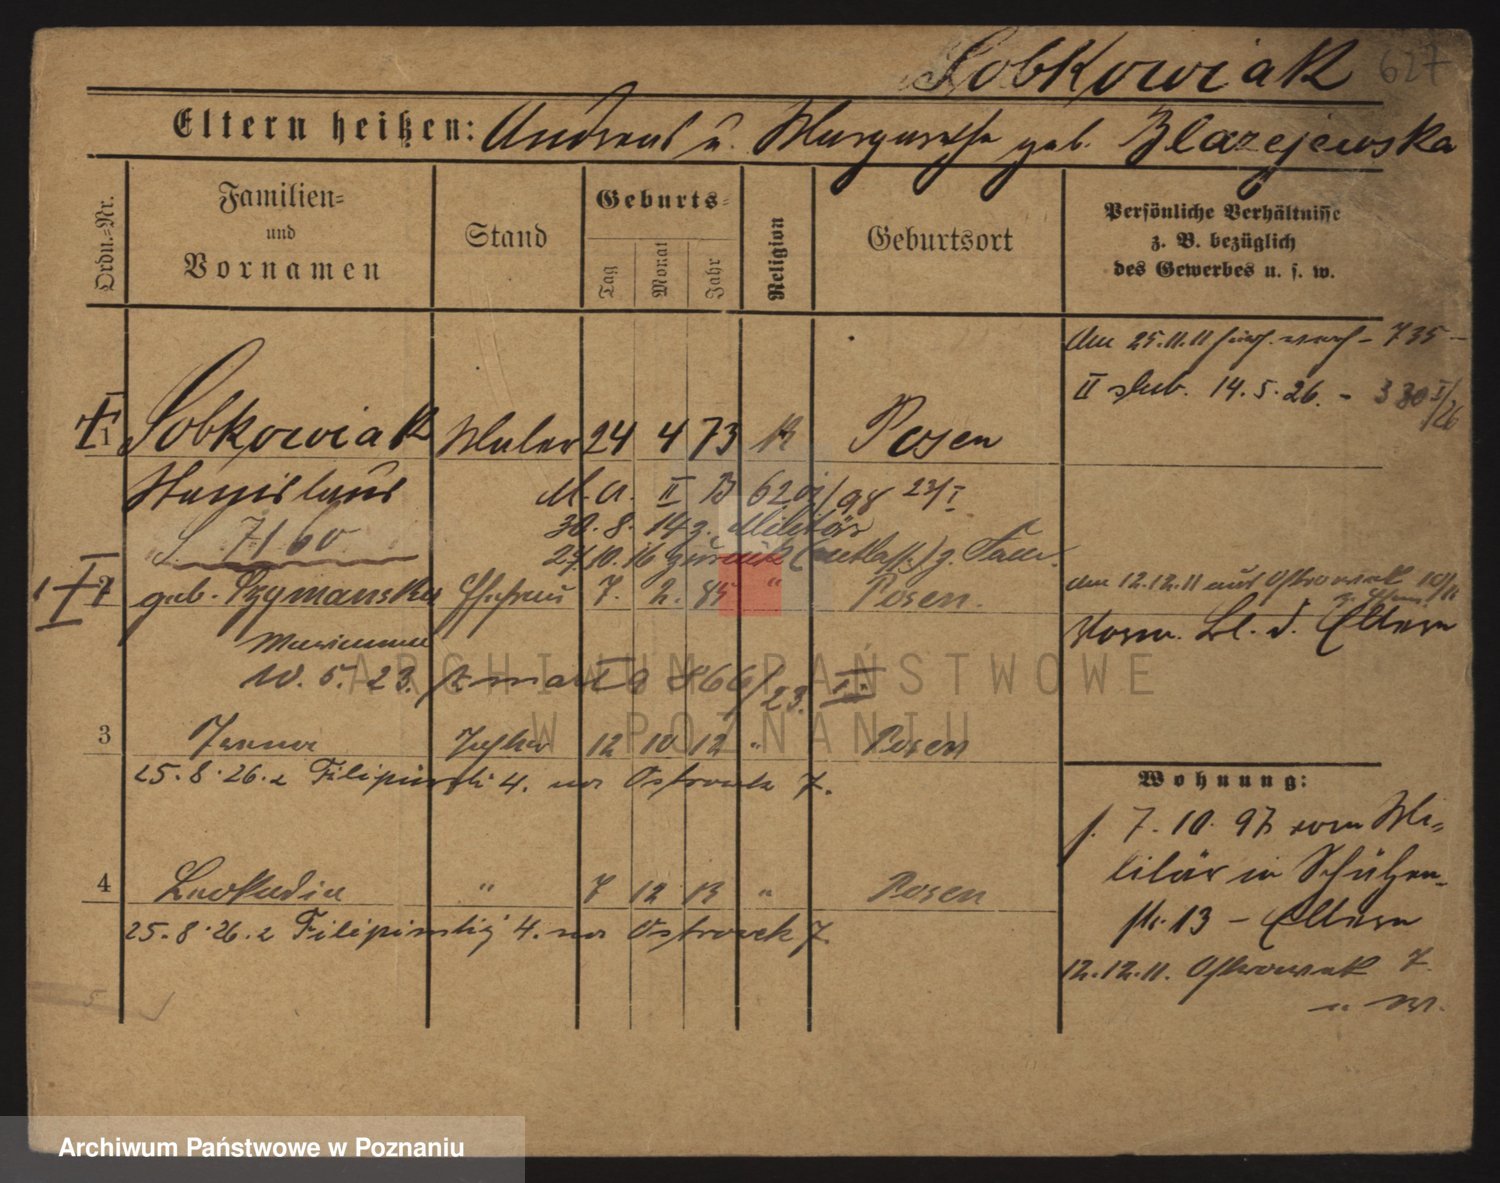 Sobkowiak 627
Eltern heißen: Andreas u. Margarethe geb. Blazejewska
Ordn.-Nr.
Familien- und Vornamen
Stand
Geburts-
Tag Monat Jahr
Religion
Geburtsort
Persönliche Verhältnisse
z. B. bezüglich
des Gewerbes u. s. w.
Am 25.11.11 - 735 -
II 14.5.26. - 330 I/26
1 Sobkowiak Maler 24 4 73 K Posen
Stanislaus M. A. II B 620/98 23/I
S. 7160 30.8.14 z. Militär
27.10.16 zurück (entlass.) z. Fam.
2 geb. Szymanska Ehefrau 7. 2. 85 " Posen.
am 12.12.11 aus Ostrowek 10/11
Marianna
Vorm. Bl. d. Eltern
10.5.23. 866/23. III
3 Janina Tochter 12 10 12 " Posen
25.8.26. Filipinski 4. Ostrowek 7.
4 Leokadia " 7 12 13 " Posen
25.8.26. Filipinski 4. Ostrowek 7.
5
Wohnung:
f. 7.10.97 vom Mi-
litär in Schützen-
str. 13 - Eltern
12.12.11. Ostrowek 7.
ARCHIWUM PAŃSTWOWE
W POZNANIU
Archiwum Państwowe w Poznaniu